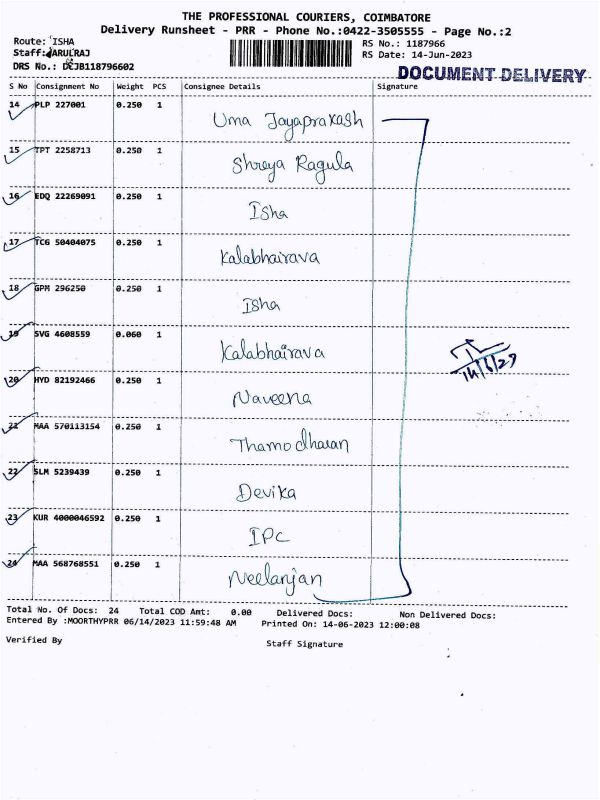 THE PROFESSIONAL COURIERS, COIMBATORE
Delivery Runsheet - PRR - Phone No.:0422-3505555 - Page No.:2
Route: ISHA
RS No.: 1187966
Staff: ARULRAJ
RS Date: 14-Jun-2023
DRS No.: DCJB118796602
DOCUMENT DELIVERY
S No Consignment No Weight PCS Consignee Details Signature
14 PLP 227001 0.250 1 Uma Jayaprakash
15 TPT 2258713 0.250 1 Shreya Ragula
16 EDQ 22269091 0.250 1 Isha
17 TCG 50404075 0.250 1 Kalabhairava
18 GPM 296250 0.250 1 Isha
19 SVG 4608559 0.060 1 Kalabhairava
20 HYD 82192466 0.250 1 Naveena
21 MAA 570113154 0.250 1 Thamodharan
22 SLM 5239439 0.250 1 Devika
23 KUR 4000046592 0.250 1 IPC
24 MAA 568768551 0.250 1 Neelanjan
Total No. Of Docs: 24 Total COD Amt: 0.00 Delivered Docs: Non Delivered Docs:
Entered By :MOORTHYPRR 06/14/2023 11:59:48 AM Printed On: 14-06-2023 12:00:08
Verified By Staff Signature